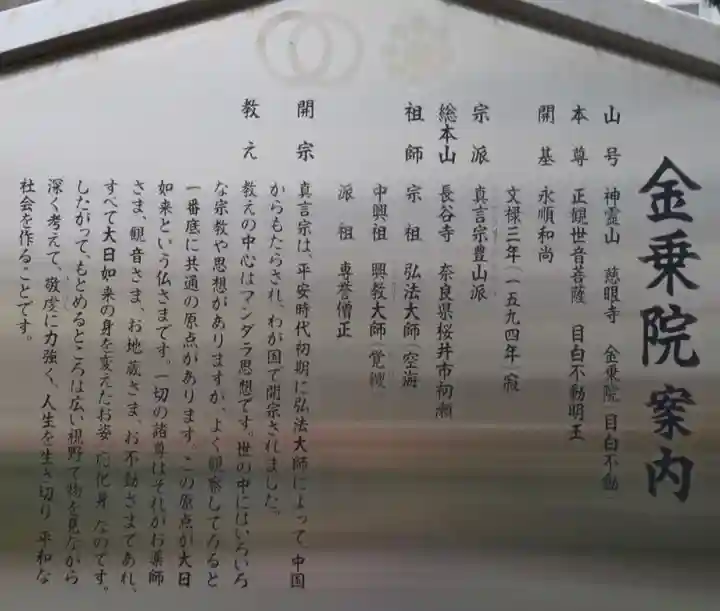 金乗院案内
山号 神霊山 慈眼寺 金乗院 目白不動
本尊 正観世音菩薩 目白不動明王
開基 永順和尚
文禄三年(一五九四年)寂
宗派 真言宗豊山派
総本山 長谷寺 奈良県桜井市初瀬
祖師 宗祖 弘法大師(空海
中興祖 興教大師(覚鑁
派祖 専誉僧正
開宗 真言宗は、平安時代初期に弘法大師によって、中国
からもたらされ、わが国で開宗されました。
教え 教えの中心はマンダラ思想です。世の中にはいろいろ
な宗教や思想がありますが、よく観察してみると
一番底に共通の原点があります。この原点が大日
如来という仏さまです。一切の諸尊はそれがお薬師
さま、観音さま、お地蔵さま、お不動さまであれ、
すべて大日如来の身を変えたお姿 応化身 なのです。
したがって、もとめるところは広い視野で物を見ながら
深く考えて、敬虔に力強く、人生を生き切り 平和な
社会を作ることです。